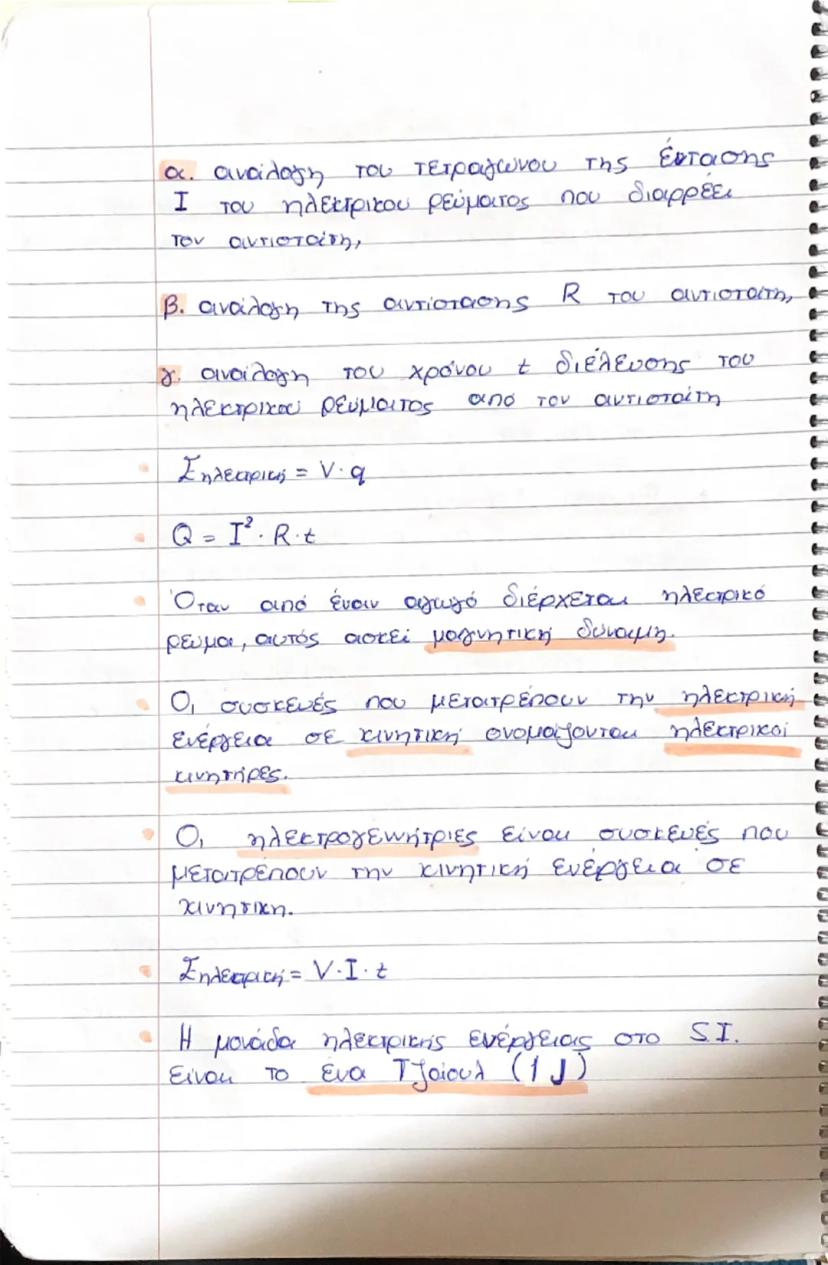 α. ανάλογη του τετραγώνου της έντασης
I του ηλεκτρικού ρεύματος που διαρρέει
τον αντιστάτη,
β. ανάλογη της αντίστασης R του αντιστάτη,
γ. ανάλογη του χρόνου t διέλευσης του
ηλεκτρικού ρεύματος από τον αντιστάτη
Σηλεκτρική = V · q
Q = I² · R · t
Όταν από έναν αγωγό διέρχεται ηλεκτρικό
ρεύμα, αυτός ασκεί μαγνητική δύναμη.
Οι συσκευές που μετατρέπουν την ηλεκτρική
ενέργεια σε κινητική ονομάζονται ηλεκτρικοί
κινητήρες.
Οι ηλεκτρογεννήτριες είναι συσκευές που
μετατρέπουν την κινητική ενέργεια σε
κινητικη.
Σηλεκτρική = V · I · t
Η μονάδα ηλεκτρικής ενέργειας στο S.I.
είναι το ένα Τζάουλ (1 J)